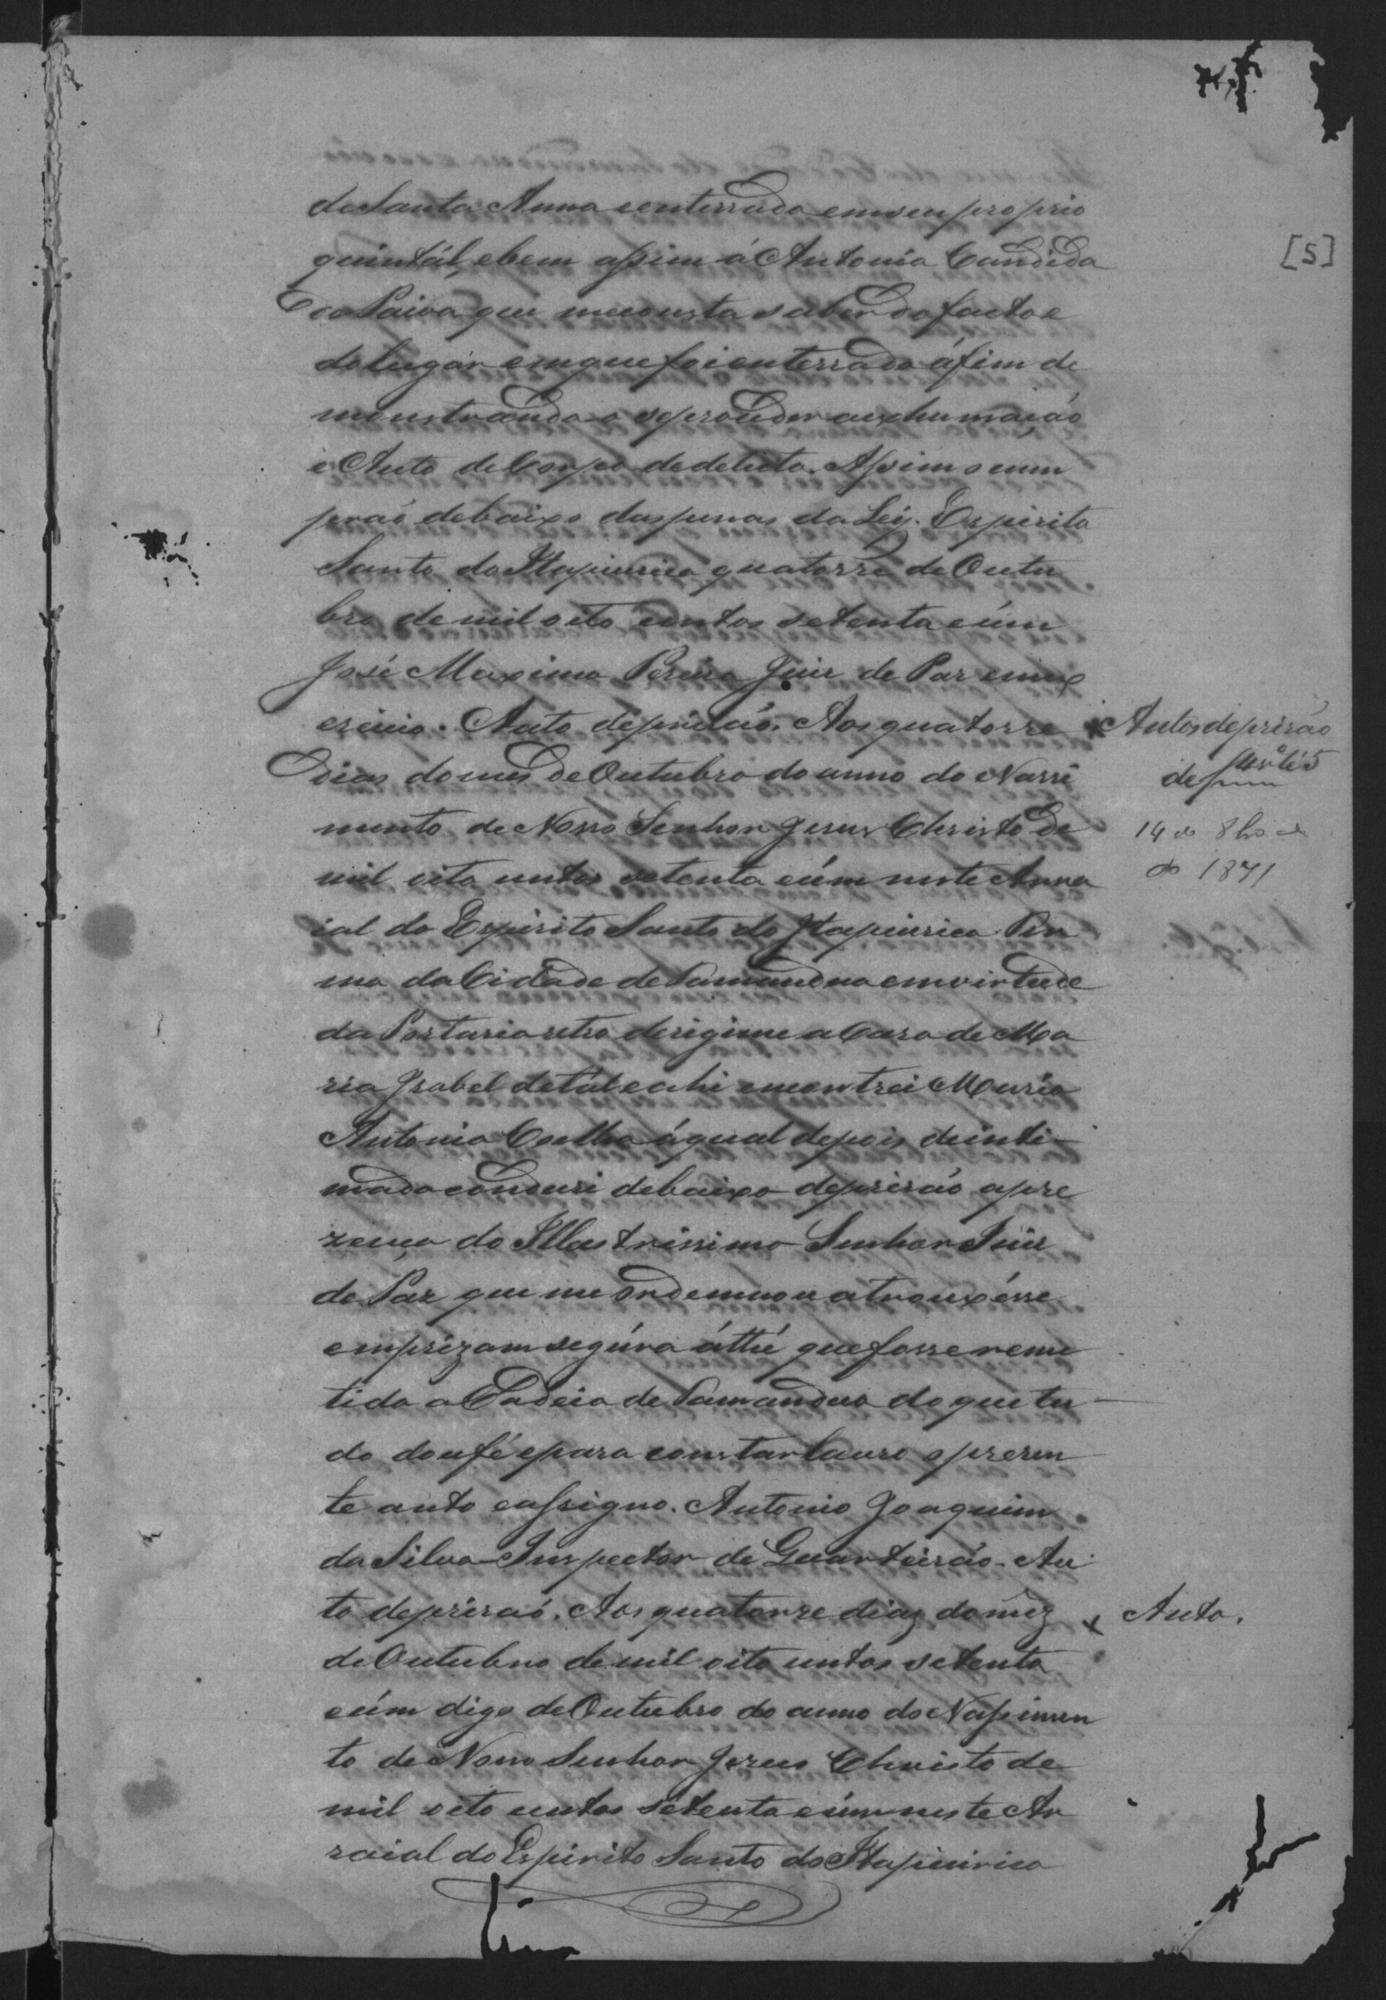 [5]
de Santa Anna e enterrado em seu proprio
quintál, e bem assim á Antonia Candida
de Paiva que me consta saber do facto e
do lugar em que foi enterrado áfim de
monstrando-o se proceder a exhumação
e Auto de Corpo de delicto. Assim o cum
prão debaixo das penas da Ley. Espirito
Santo do Itapicirica quatorze de Outu
bro de mil oito centos setenta e úm
José Maximo Pereira Juiz de Paz em ex
ercicio. Auto de prisão. Aos quatorze
dias do mes de Outubro do anno do Nassi
mento de Nosso Senhor Jesus Christo de
mil oito centos setenta e úm neste Arra
ial do Espirito Santo do Itapicirica Ter
mo da Cidade de Tamandua em virtude
da Portaria retro derigime a Casa de Ma
ria Isabel de tál e ahi encontrei Maria
Antonia Coelho á qual depois de inti-
mada condusi debaixo de prisão a pre
zença do Illustrissimo Senhor Juiz
de Paz que me ordennou a trouxésse
em prizam segúra átthé que fosse reme
tida a Cadeia de Tamandua do que tu
do dou fé e para constar lavro o prezen
te auto e assigno. Antonio Joaquim
da Silva Inspector de Quarteirão. Au
to de prisaõ. Aos quatorze diaz do mez
de Outubro de mil oito centos setenta
e úm digo de Outubro do anno do Nassimen
to de Nosso Senhor Jezus Christo de
mil oito centos setenta e úm neste Ar
raial do Espirito Santo do Itapicirica
x Autos de prisão
de
14 de 8bro
de 1871
x Auto.